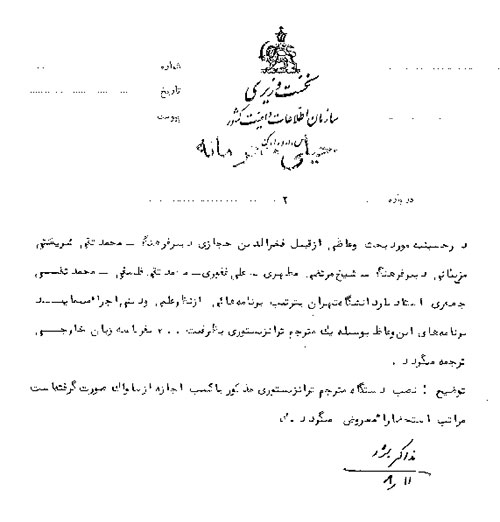 شماره
تاریخ
پیوست
نخست وزیری
سازمان اطلاعات و امنیت کشور
درباره
۲
در حسینیه مورد بحث وعاظی از قبیل فخرالدین حجازی دبیر فرهنگ ـ محمد تقی شریعتی
مزینانی دبیر فرهنگ ـ شیخ مرتضی مطهری ـ علی غفوری ـ محمد تقی فلسفی ـ محمد تقی
جعفری استاد دانشگاه تهران بترتیب برنامه‌هائی از نظر علمی و دینی اجرا مینمایند
برنامه‌های این وعاظ بوسیله یک مترجم ترانزیستوری باظرفیت ۲۰۰ نفر به سه زبان خارجی
ترجمه میگردد .
توضیح : نصب دستگاه مترجم ترانزیستوری مذکور با کسب اجازه از ساواک صورت گرفته است
مراتب استحضارا معروض میگردد .
مذاکره شود
۸ر۱۱